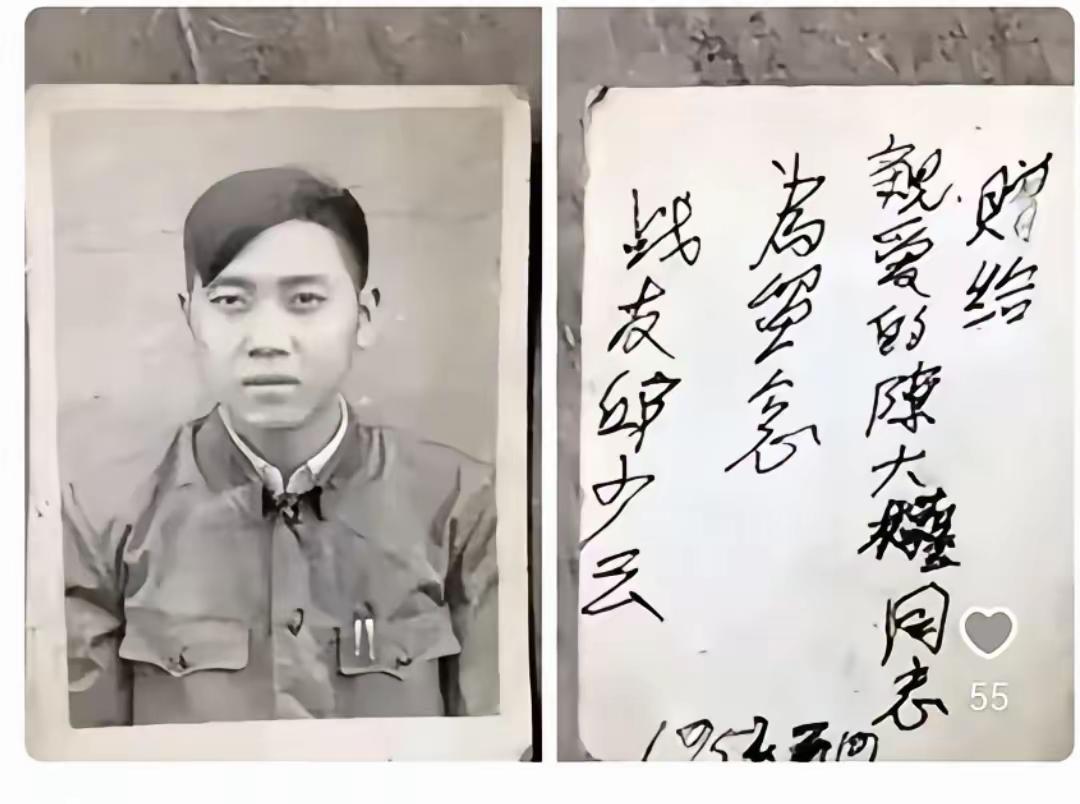 赠给
親爱的陳大同志
為留念
战友邱少云
55